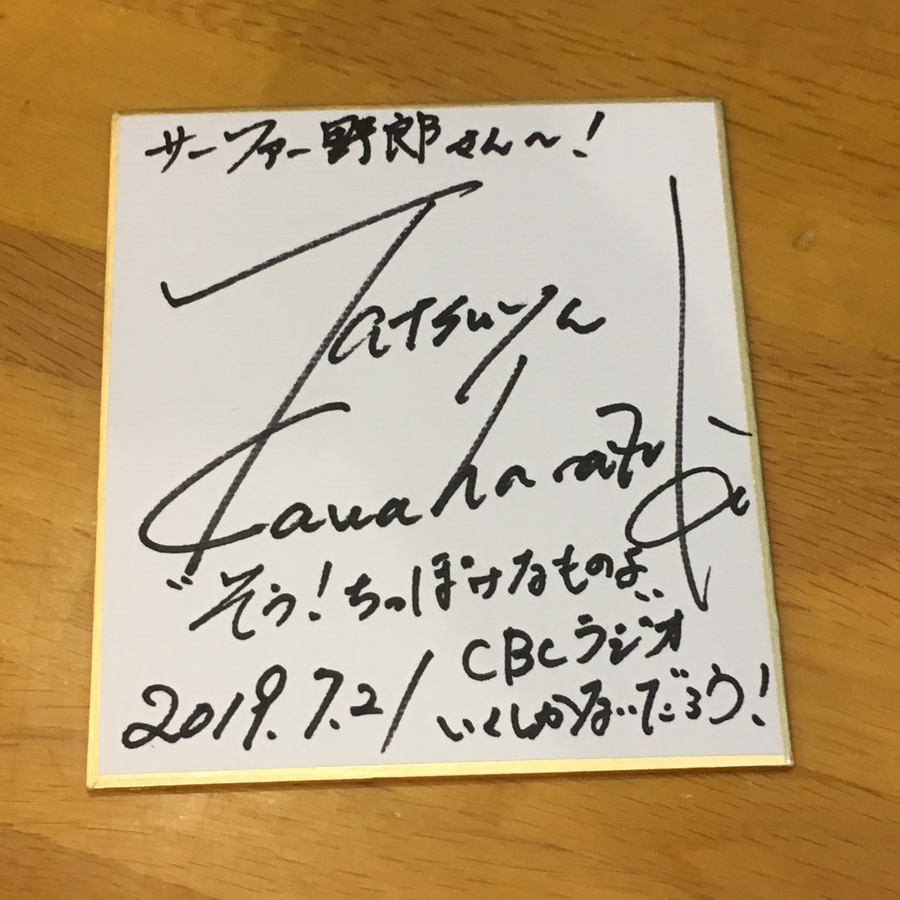 サーファー野郎さん〜!
Tatsuya
"そう!ちっぽけなものよ"
CBCラジオ
いくしかないだろう!
2019.7.21